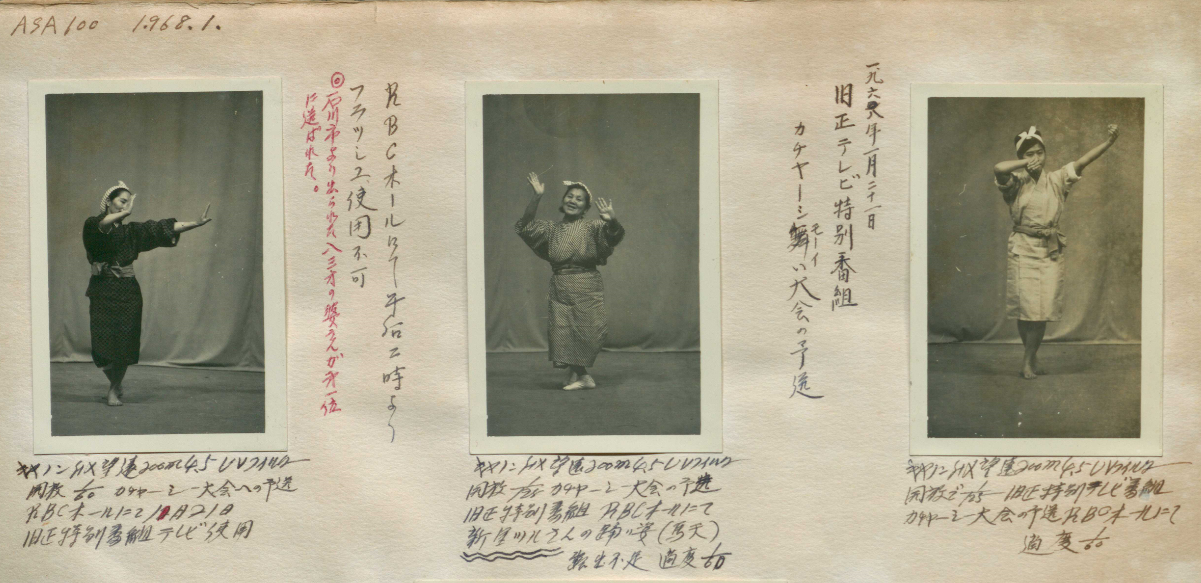 ASA100 1.968.1.
一九六八年一月二十一日
旧正テレビ特別番組
カチャーシ舞い大会の予選
モーイ
RBCホールにて午后二時より
フラッシュ使用不可
◎石川市より出られた八三才の婆さんが才一位
に選ばれた。
キャノンFX望遠200m4.5UVフイルター
開放 1/60 カチャーシー大会への予選
RBCホールにて1月21日
旧正特別番組テレビ使用
キャノンFX望遠200m4.5UVフイルター
開放 1/125 カチャーシー大会の予選
旧正特別番組 RBCホールにて
新垣ツルさんの踊い姿(馬天)
露出不足 適度1/60
キャノンFX望遠200m4.5UVフイルター
開放で 旧正特別テレビ番組
カチャーシー大会の予選RBCホールにて
適度1/60